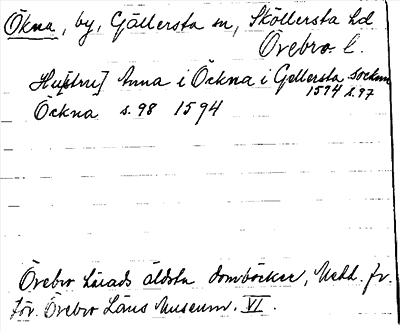 Ökna, by, Gällersta sn, Sköllersta hd
Örebro l.
Hu[stru] Anna i Öckna i Gellersta socknn
1594 s.97
Öckna s.98 1594
Örebro härads äldsta domböcker, Medd. fr.
för. Örebro Läns Museum. VI.